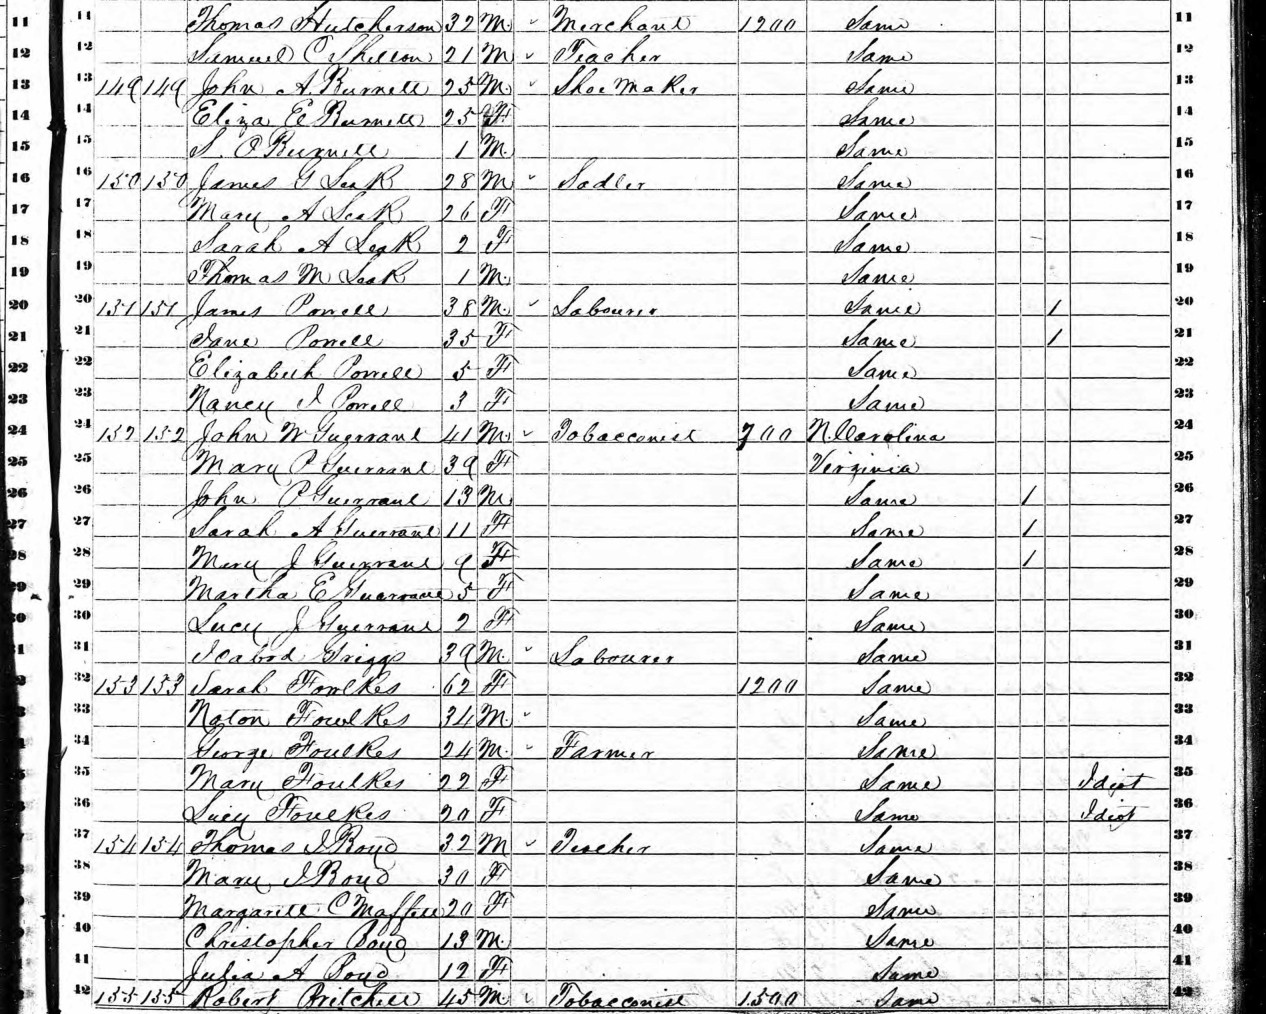 11 11 Thomas Hutcherson 32 M. Merchant 1200 Same 11
12 12 Samuel C Shelton 21 M Teacher Same 12
13 149 149 13 John A. Burnett 25 M. Shoe Maker Same 13
14 14 Eliza E Burnett 25 F Same 14
15 15 S. O Burnett 1 M. Same 15
16 150 150 16 James G Seak 28 M Sadler Same 16
17 17 Mary A Seak 26 F Same 17
18 18 Sarah A Seak 2 F Same 18
19 19 Thomas M Seak 1 M. Same 19
20 151 151 20 James Powell 38 M. Labourer Same 1 20
21 21 Jane Powell 35 F Same 1 21
22 22 Elizabeth Powell 5 F Same 22
23 23 Nancy J Powell 3 F Same 23
24 152 152 24 John W Guerrant 41 M. Tobacconist 700 N. Carolina 24
25 25 Mary P Guerrant 39 F Virginia 25
26 26 John P Guerrant 13 M Same 1 26
27 27 Sarah A Guerrant 11 F Same 1 27
28 28 Mary J Guerrant 9 F Same 1 28
29 29 Martha E Guerrant 5 F Same 29
30 30 Lucy J Guerrant 2 F Same 30
31 31 Icabod Griggs 39 M. Labourer Same 31
2 153 153 32 Sarah Fowlkes 62 F 1200 Same 32
3 33 Noton Fowlkes 34 M. Same 33
4 34 George Foulkes 24 M. Farmer Same 34
5 35 Mary Foulkes 22 F Same Idiot 35
36 Lucy Foulkes 20 F Same Idiot 36
154 154 37 Thomas J Boyd 32 M Teacher Same 37
38 Mary J Boyd 30 F Same 38
39 Margarett C Maffett 20 F Same 39
40 Christopher Boyd 13 M. Same 40
41 Julia A Boyd 12 F Same 41
155 155 42 Robert Pritchett 45 M Tobacconist 1500 Same 42